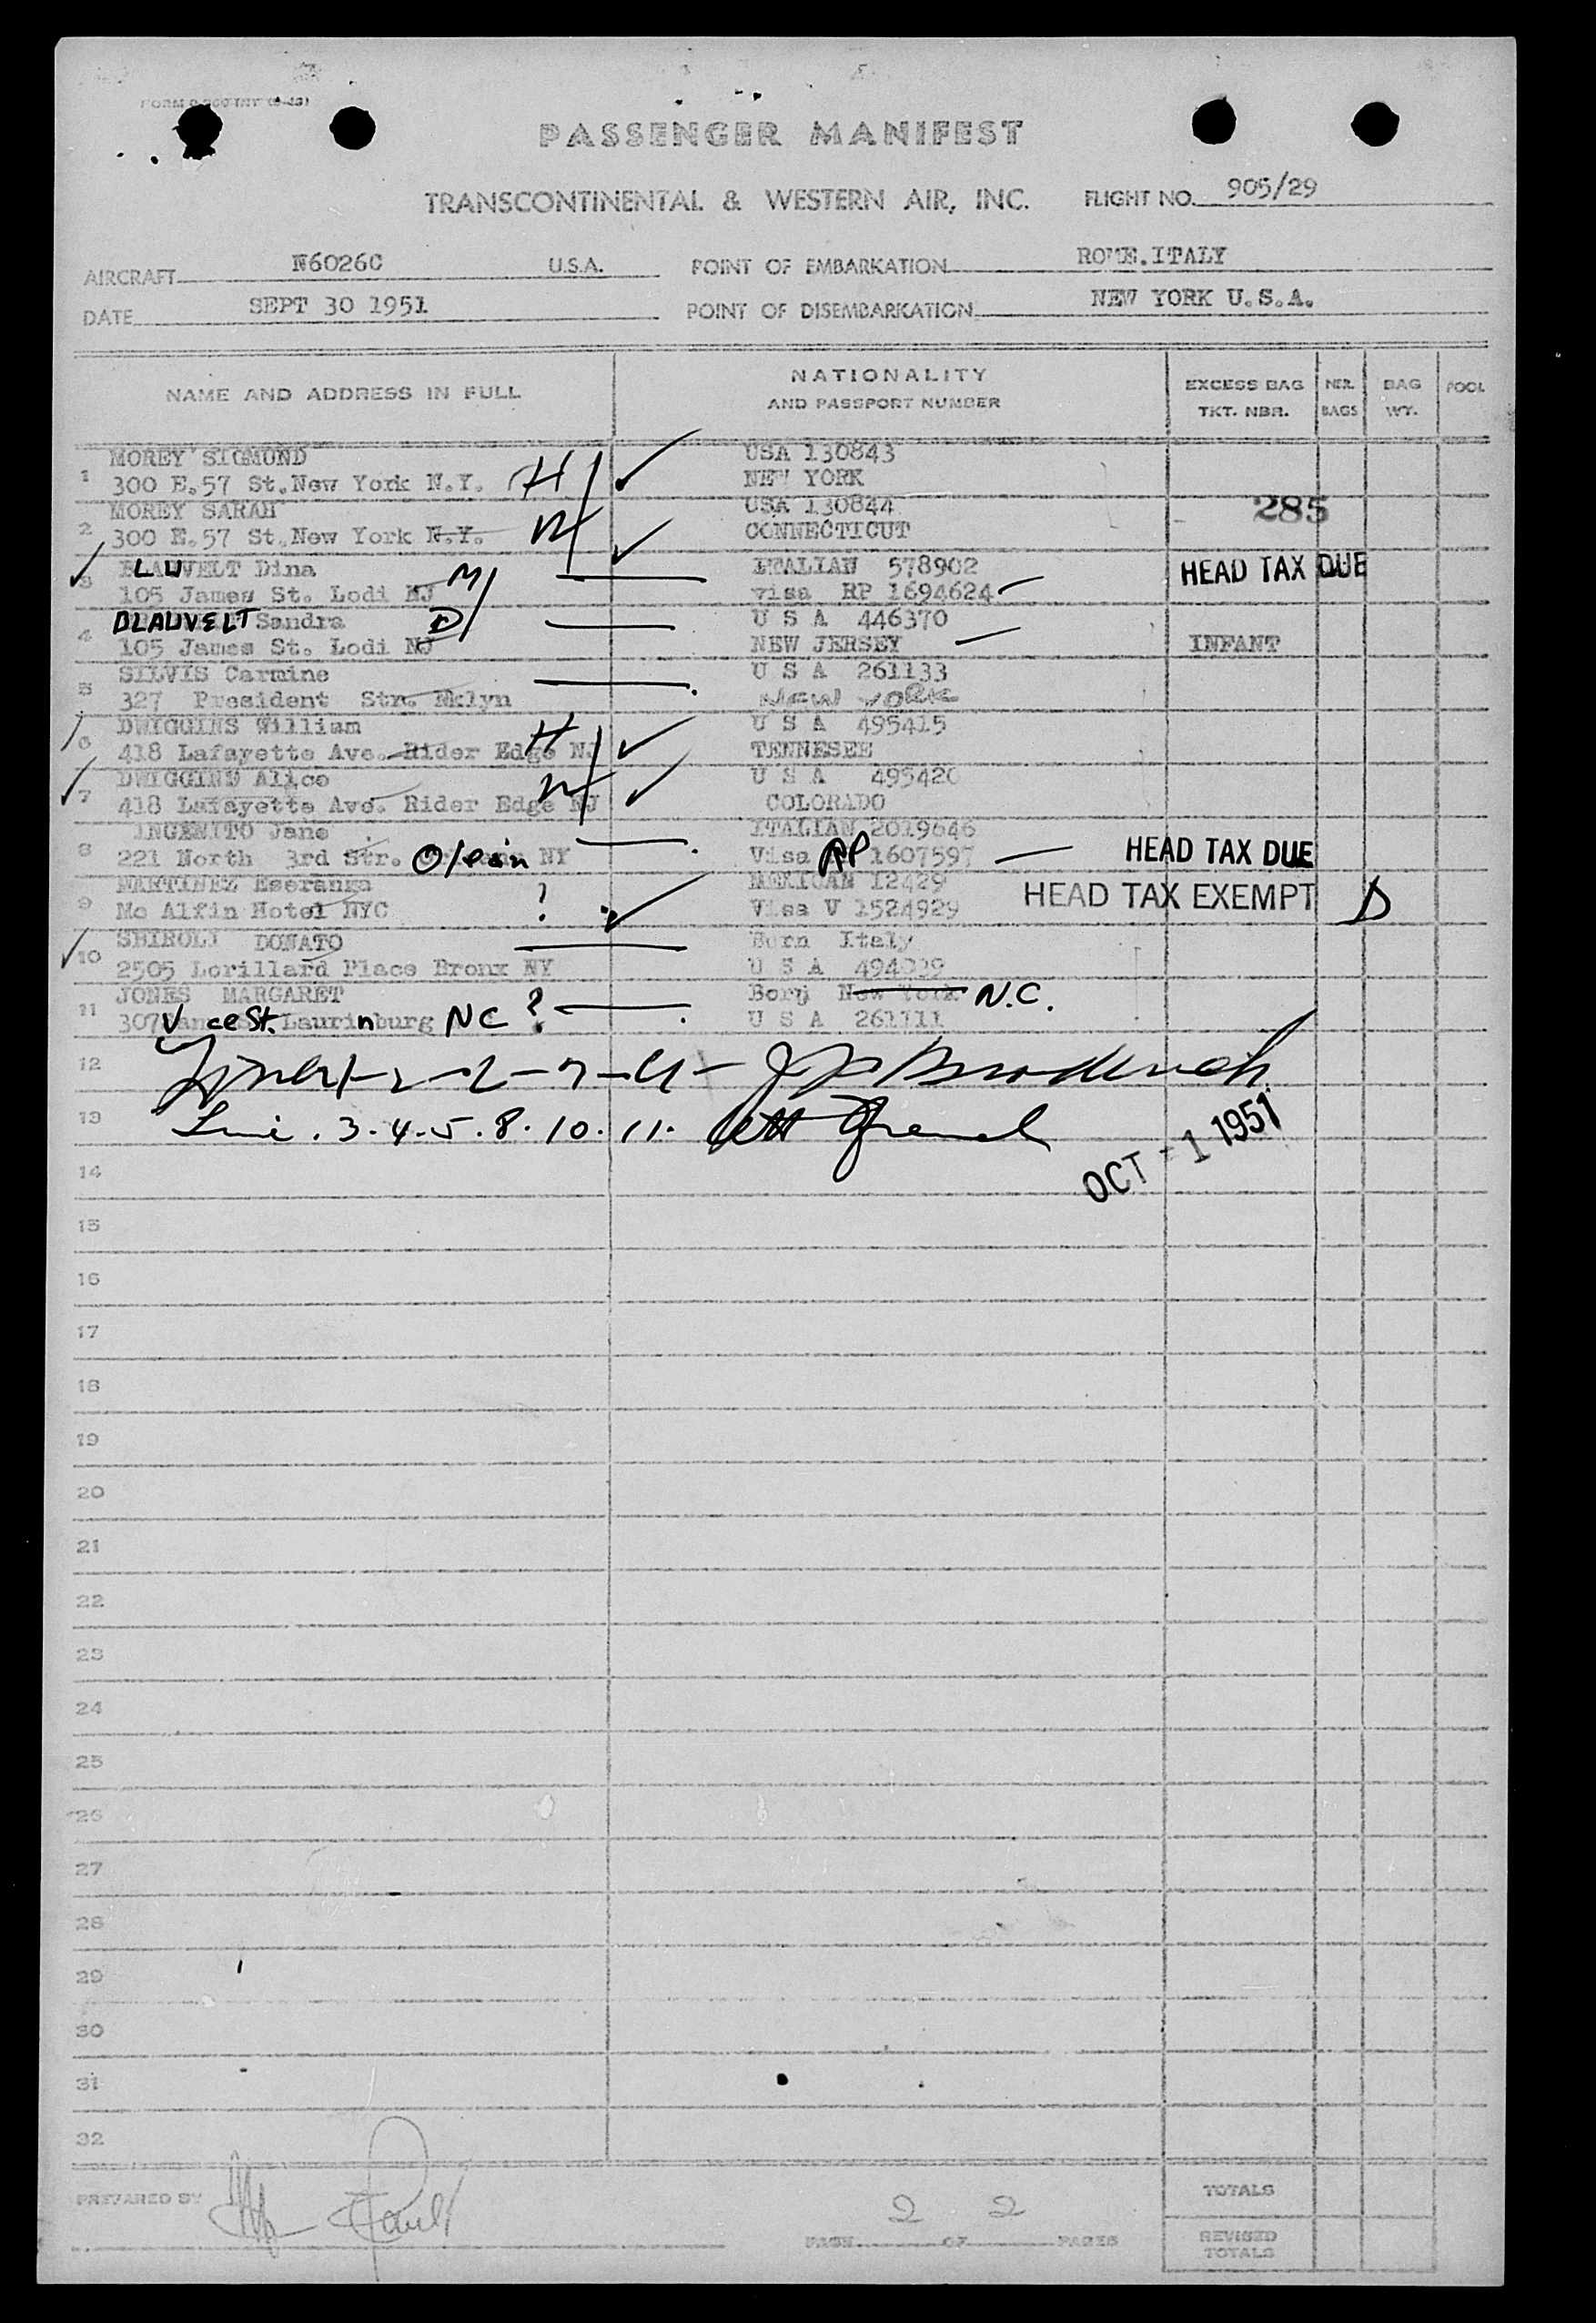 PASSENGER MANIFEST
TRANSCONTINENTAL & WESTERN AIR, INC. FLIGHT NO. 905/29
AIRCRAFT N6026C U.S.A. POINT OF EMBARKATION ROME.ITALY
DATE SEPT 30 1951 POINT OF DISEMBARKATION NEW YORK U.S.A.
NAME AND ADDRESS IN FULL NATIONALITY AND PASSPORT NUMBER EXCESS BAG TKT. NBR. NBR. BAGS BAG WT. POOL
1 MOREY SIGMUND USA 130843
300 E.57 St.New York N.Y. H NEW YORK
2 MOREY SARAH USA 130844 285
300 E.57 St.New York N.Y. CONNECTICUT
3 BLAUVELT Dina ITALIAN 578902 HEAD TAX DUE
105 James St. Lodi NJ M visa RP 1694624
4 BLAUVELT Sandra D U S A 446370
105 James St. Lodi NJ NEW JERSEY INFANT
5 SILVIS Carmine U S A 261133
327 President Str. Bklyn NEW YORK
6 DWIGGINS William H U S A 495415
418 Lafayette Ave. Rider Edge NJ TENNESEE
7 DWIGGINS Alice U S A 495420
418 Lafayette Ave. Rider Edge NJ COLORADO
8 INGENITO Jane ITALIAN 2019646
221 North 3rd Str. Olean NY Visa RP 1607597 HEAD TAX DUE
9 MARTINEZ Eseranga ? MEXICAN 12429 HEAD TAX EXEMPT
Mc Alfin Hotel NYC Visa V 1524929
10 SBIROLI DONATO Born Italy
2505 Lorillard Place Bronx NY U S A
11 JONES MARGARET Born New York N.C.
307 Vance St. Laurinburg NC ? U S A 261111
12
13 3.4.5.8.10.11.
OCT - 1 1951
14
15
16
17
18
19
20
21
22
23
24
25
26
27
28
29
30
31
32
PREPARED BY PAGE 2 OF 2 PAGES TOTALS
REVISED TOTALS